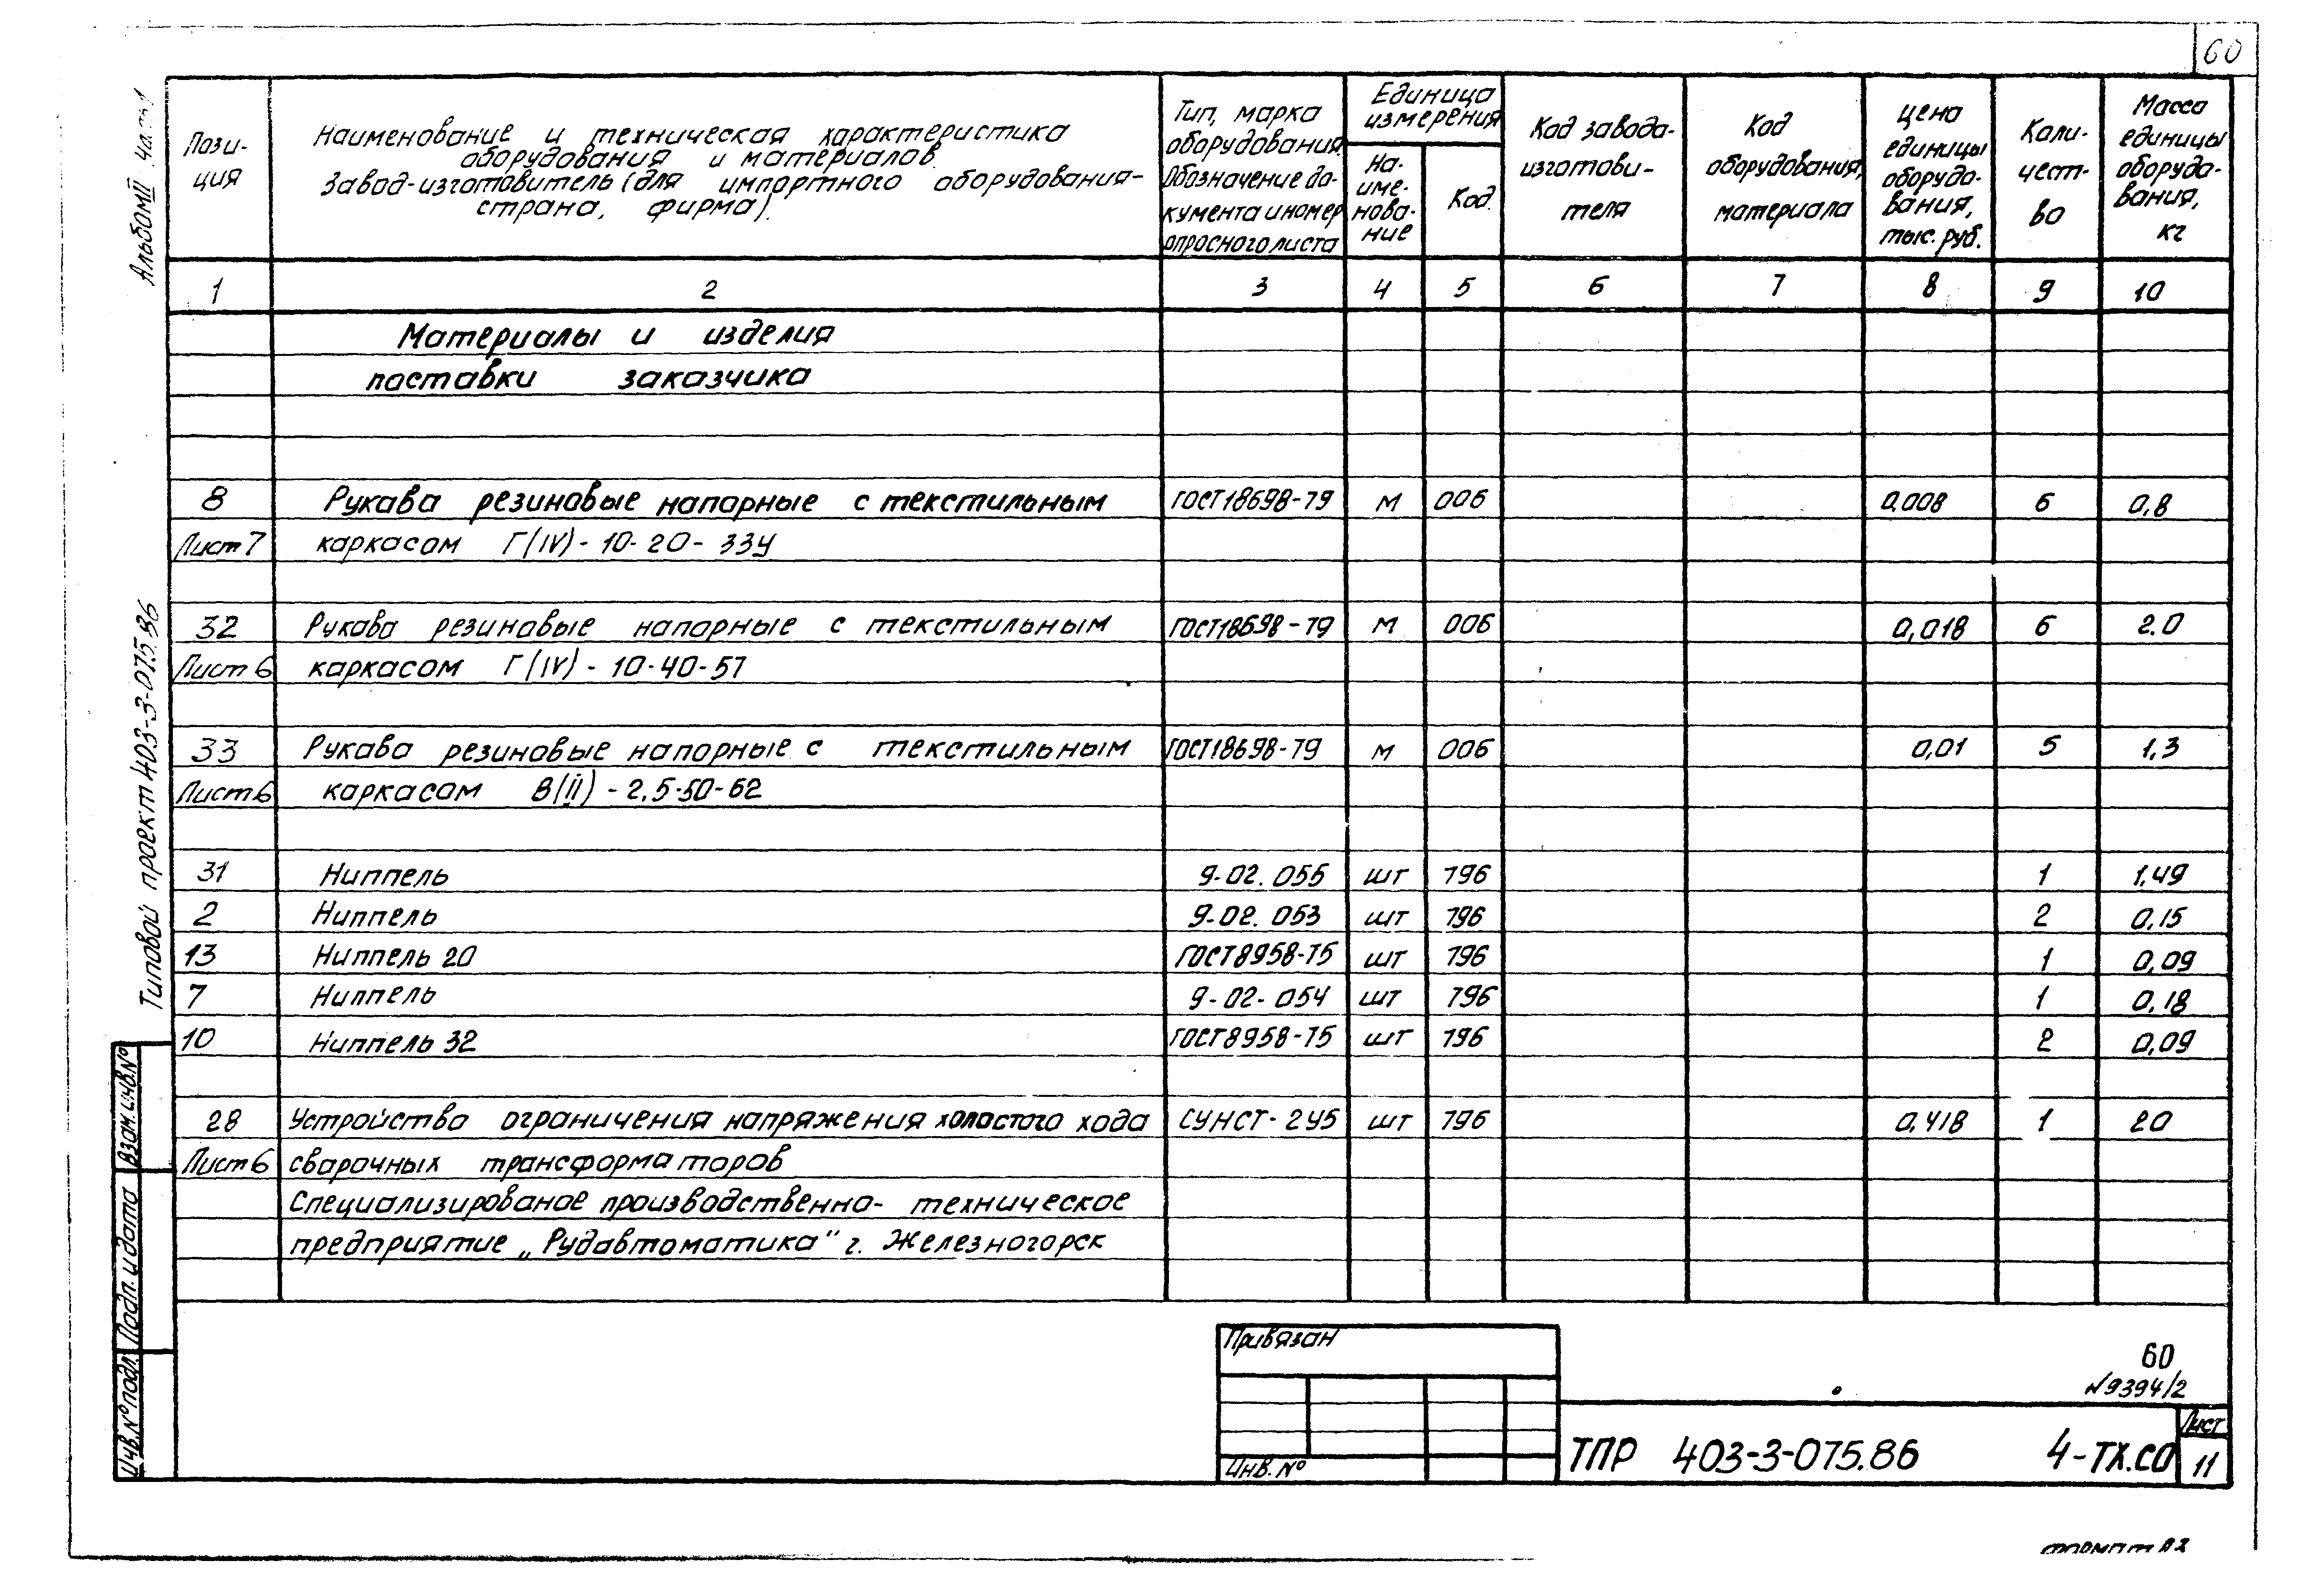 60
Альбом III
Пози-
ция
Наименование и техническая характеристика
оборудования и материалов.
Завод-изготовитель (для импортного оборудования-
страна, фирма).
Тип, марка
оборудования.
Обозначение до-
кумента и номер
опросного листа
Единица
измерения
На-
име-
нова-
ние
Код.
Код завода-
изготови-
теля
Код
оборудования,
материала
Цена
единицы
оборудо-
вания,
тыс. руб.
Коли-
чест-
во
Масса
единицы
оборудо-
вания,
кг
1 2 3 4 5 6 7 8 9 10
Материалы и изделия
поставки заказчика
8 Рукава резиновые напорные с текстильным ГОСТ 18698-79 м 006 0,008 6 0,8
Лист 7 каркасом Г(IV)-10-20-33У
32 Рукава резиновые напорные с текстильным ГОСТ 18698-79 м 006 0,018 6 2.0
Лист 6 каркасом Г(IV)-10-40-57
33 Рукава резиновые напорные с текстильным ГОСТ 18698-79 м 006 0,01 5 1,3
Лист 6 каркасом В(II)-2,5-50-62
31 Ниппель 9-02.055 шт 796 1 1,49
2 Ниппель 9-02.053 шт 796 2 0,15
13 Ниппель 20 ГОСТ 8958-75 шт 796 1 0,09
7 Ниппель 9-02-054 шт 796 1 0,18
10 Ниппель 32 ГОСТ 8958-75 шт 796 2 0,09
28 Устройство ограничения напряжения холостого хода СУНСТ-2У5 шт 796 0,418 1 20
Лист 6 сварочных трансформаторов
Специализированое производственно-техническое
предприятие „Рудавтоматика" г. Железногорск
Типовой проект 403-3-075.86
Взам. инв. №
Подп. и дата
Инв. № подл.
Привязан
Инв. №
60
N9394/2
ТПР 403-3-075.86 4-ТХ.СО
Лист
11
Формат А3